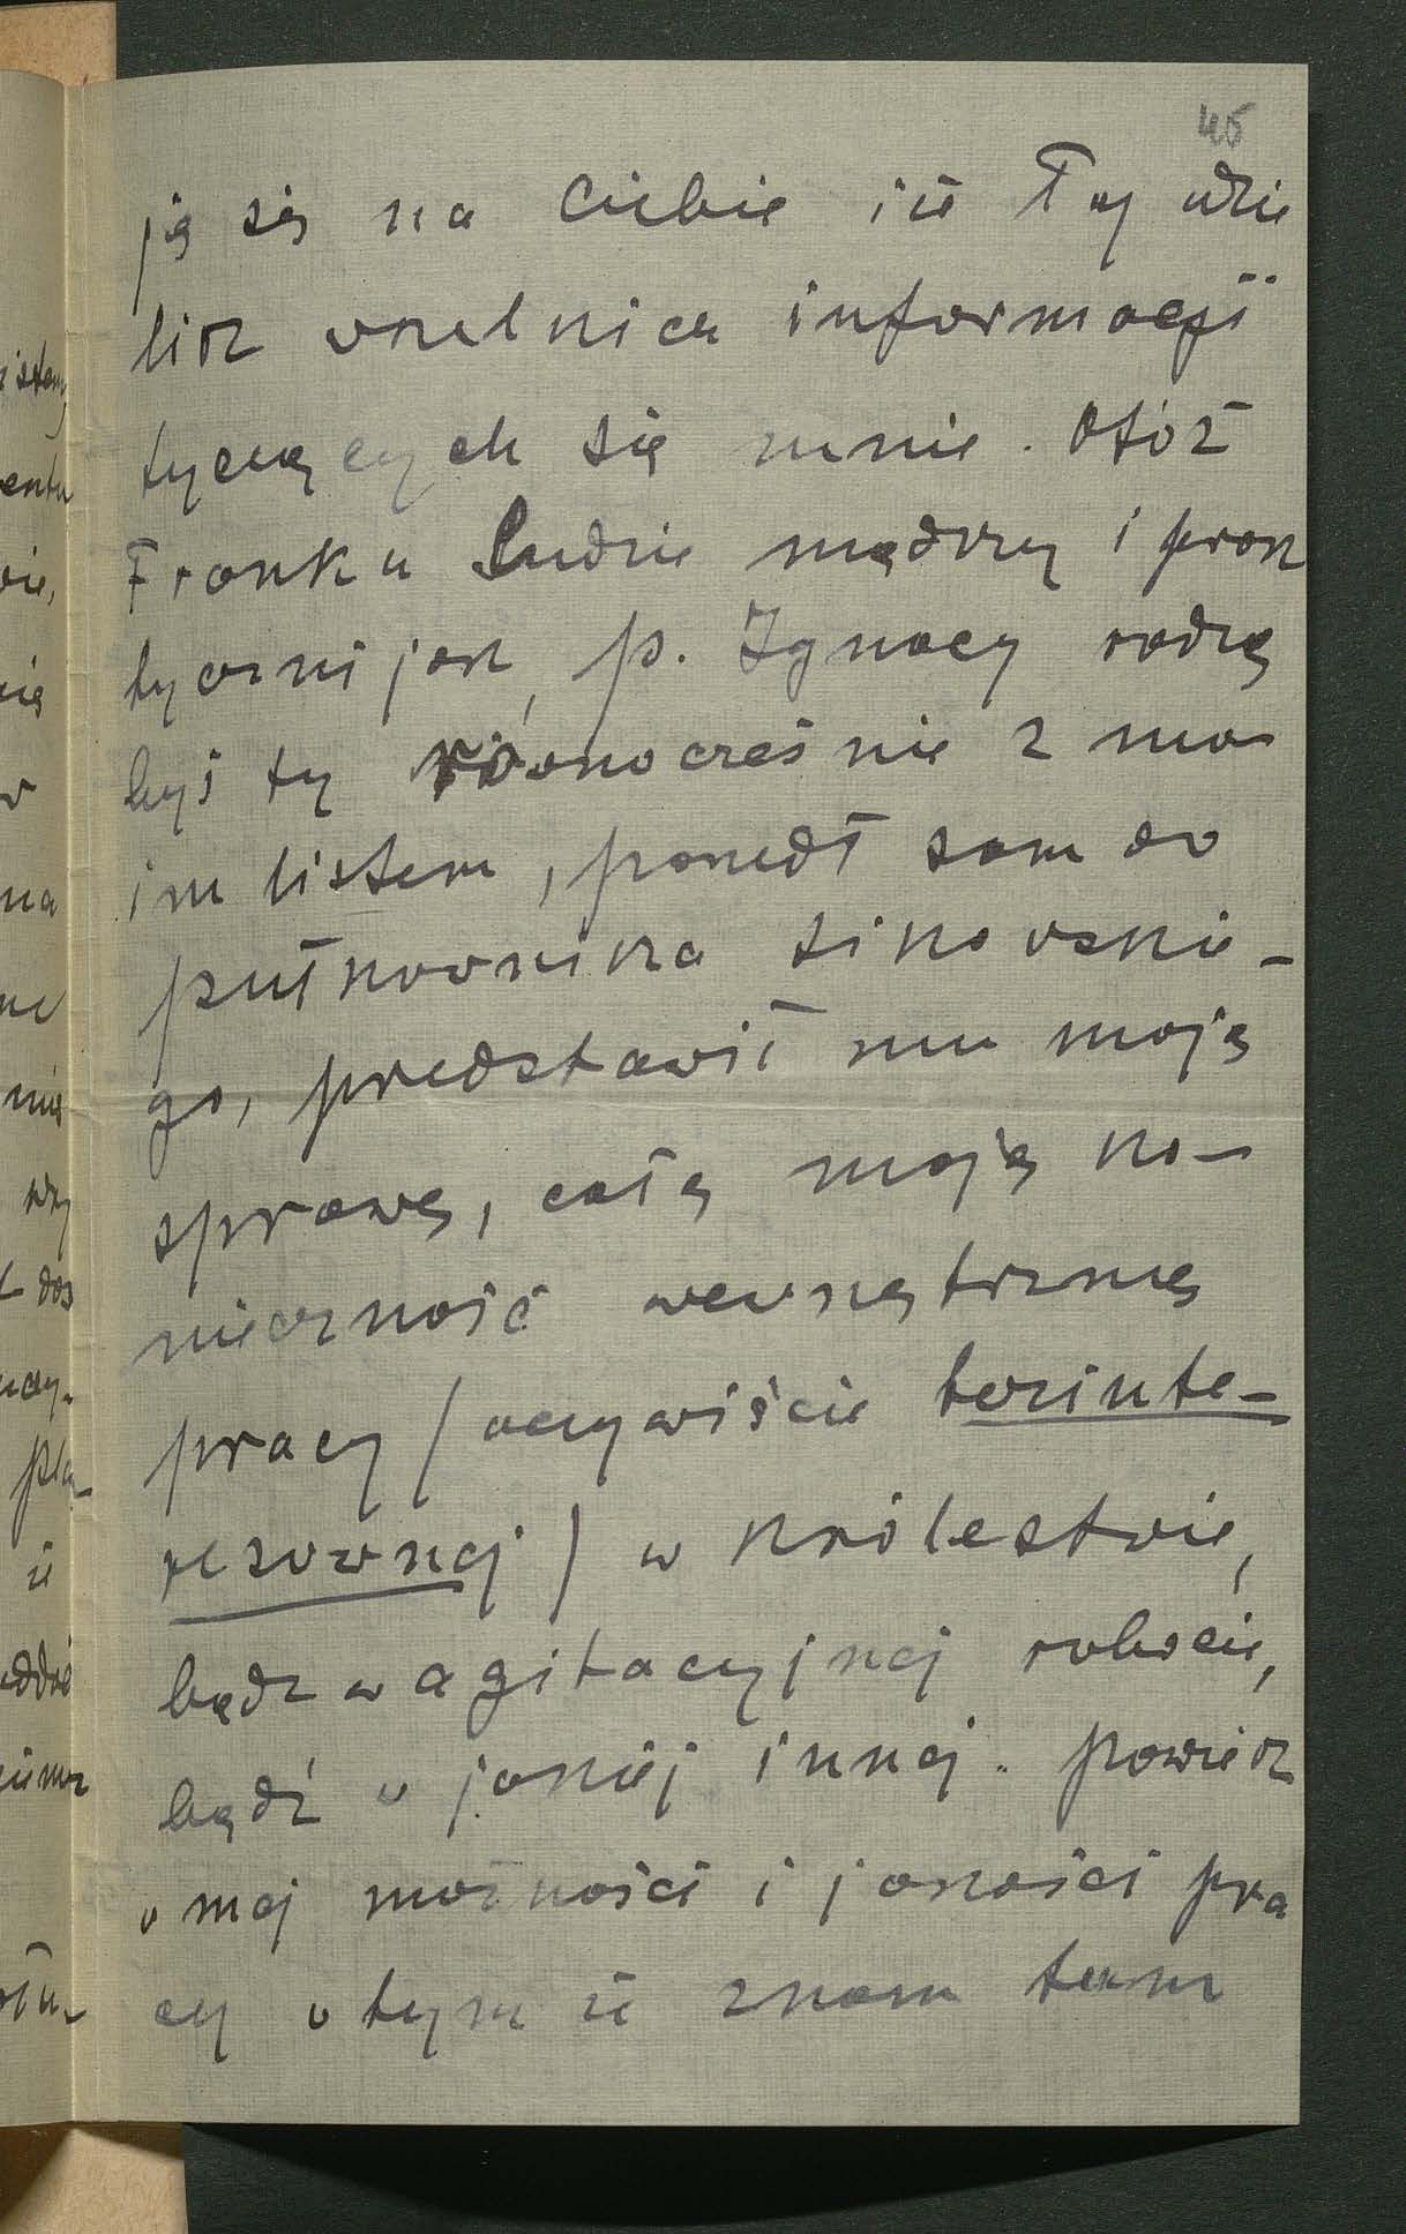 45
ję się na Ciebie iż Ty udzie
lisz wszelkich informacyji
tyczących się mnie. Otóż
Franku Ludzie mądrzy i prak
tyczni jak, p. Ignacy radzą
byś ty równocześnie z mo
im listem, poszedł sam do
pułkownika Sikorskie-
go, przedstawił mu moją
sprawę, całą moją ko-
nieczność wewnętrzną
pracy / oczywiście bezinte-
resownej / w Królestwie,
bądz w agitacyjnej robocie,
bądź w jakiej innej. Powiesz
o mej możności i jakości pra
cy o tym iż znam tam